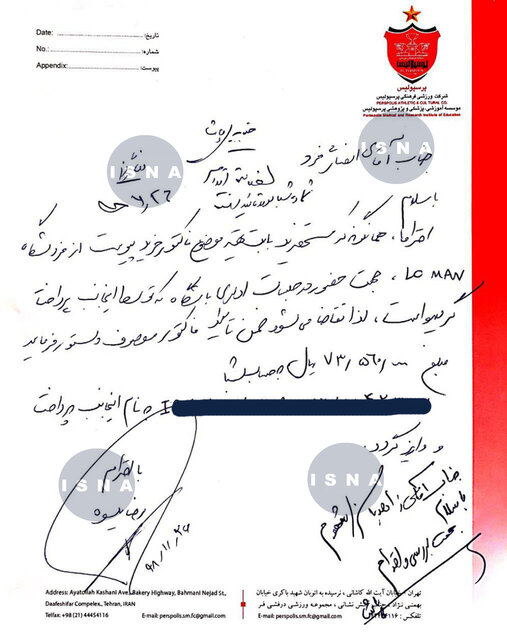 Date:
تاریخ:
No.:
شماره:
Appendix:
پیوست:
پرسپولیس
شرکت ورزشی فرهنگی پرسپولیس
PERSPOLIS ATHLETIC & CULTURAL CO.
موسسه آموزشی، پزشکی و پژوهشی پرسپولیس
Perspolis Medical and Research Institute of Education
جناب آقای افشار فرد
با سلام
احتراماً، همانگونه که مستحضرید بابت تهیه موضوع فاکتور خرید پیوست از فروشگاه
LOMAN، جهت حضور در جلسات اداری باشگاه که توسط اینجانب پرداخت
گردیده است، لذا تقاضا می‌شود ضمن تایید فاکتور موصوف دستور فرمایید
مبلغ ۷۳/۵۶۰/۰۰۰ ریال به حساب شبا
به نام اینجانب پرداخت
و واریز گردد.
با احترام
۹۸/۱۱/۲۶
با سلام
جهت بررسی و اقدام
ISNA
ISNA
ISNA
ISNA
Address: Ayatollah Kashani Ave. Bakery Highway, Bahmani Nejad St.,
Daafeshifar Compelex., Tehran, IRAN
Tellfax: (+98 21) 44454116
E-mail: perspolis.sm.fc@gmail.com
تهران: خیابان آیت الله کاشانی ، نرسیده به اتوبان شهید باکری خیابان
بهمنی نژاد، آتش نشانی ، مجموعه ورزشی درفشی فر
تلفکس :
E-mail: perspolis.sm.fc@gmail.com